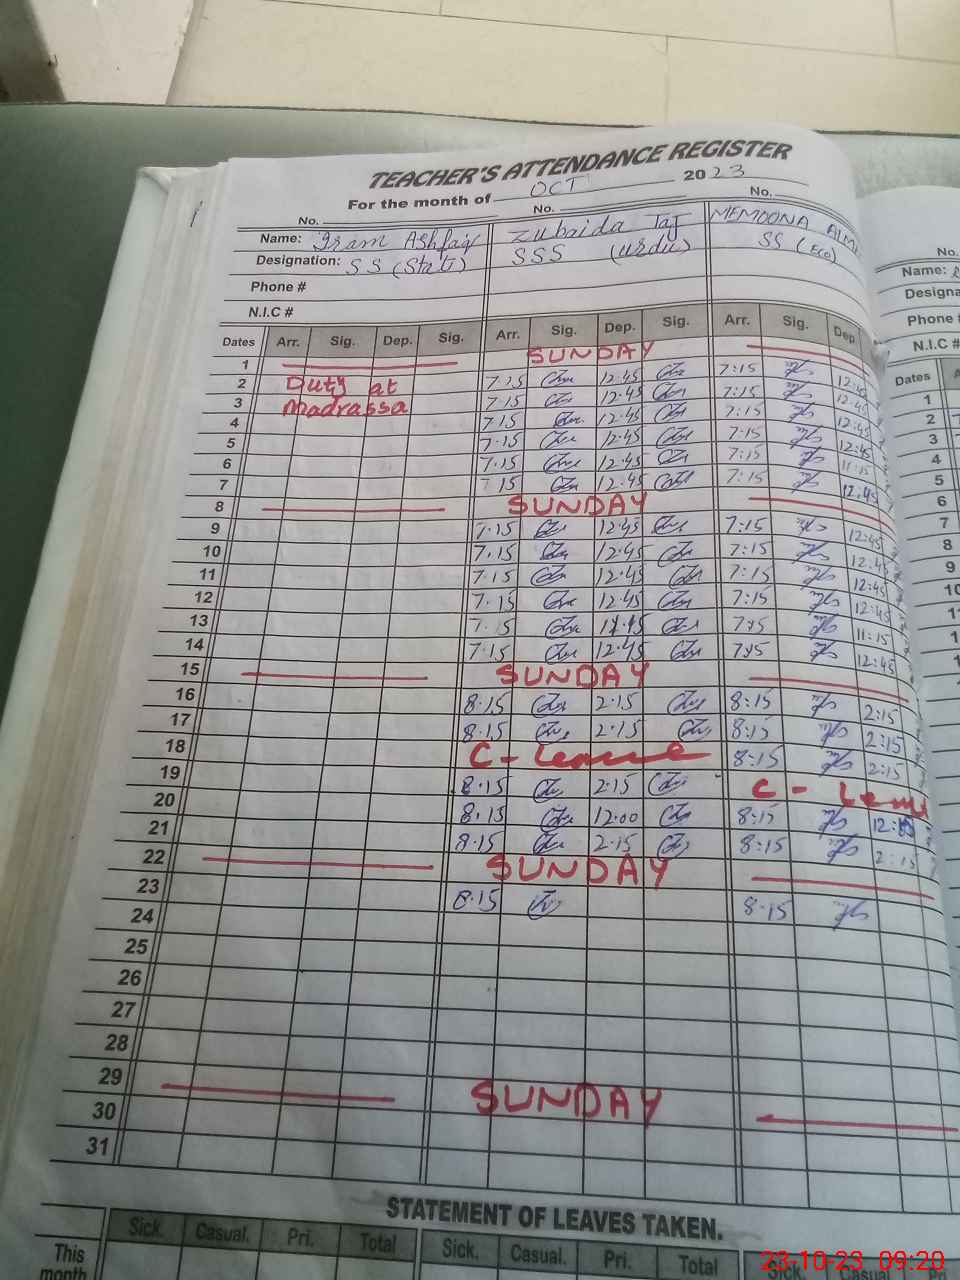 TEACHER'S ATTENDANCE REGISTER
For the month of OCT 2023
No. No. No.
Name: Iram Ashfaq Zubaida Taj MEMOONA
Designation: SS (Stats) SSS (Urdu) SS (Eco)
Phone #
N.I.C #
Dates Arr. Sig. Dep. Sig. Arr. Sig. Dep. Sig. Arr. Sig. Dep.
1 SUNDAY
2 Duty at 7.15 12.45 7:15 12:45
3 Madrassa 7.15 12.45 7:15 12:45
4 7.15 12.45 7:15 12:45
5 7.15 12.45 7:15 12:45
6 7.15 12.45 7:15 11:15
7 7.15 12.45 7:15 12:45
8 SUNDAY
9 7.15 12.45 7:15 12:45
10 7.15 12.45 7:15 12:45
11 7.15 12.45 7:15 12:45
12 7.15 12.45 7:15 12:45
13 7.15 7:15 11:15
14 7.15 12.45 7:15 12:45
15 SUNDAY
16 8.15 2.15 8:15 2:15
17 8.15 2.15 8:15 2:15
18 C-Leave 8:15 2:15
19 8.15 2.15 C-Leave
20 8.15 12.00 8:15
21 8.15 2.15 8:15 2:15
22 SUNDAY
23 8.15 8.15
24
25
26
27
28
29 SUNDAY
30
31
STATEMENT OF LEAVES TAKEN.
Sick. Casual. Pri. Total Sick. Casual. Pri. Total Sick. Casual. Pri.
This
month
No.
Name:
Designa
Phone #
N.I.C #
Dates
1
2
3
4
5
6
7
8
9
10
23-10-23 09:20